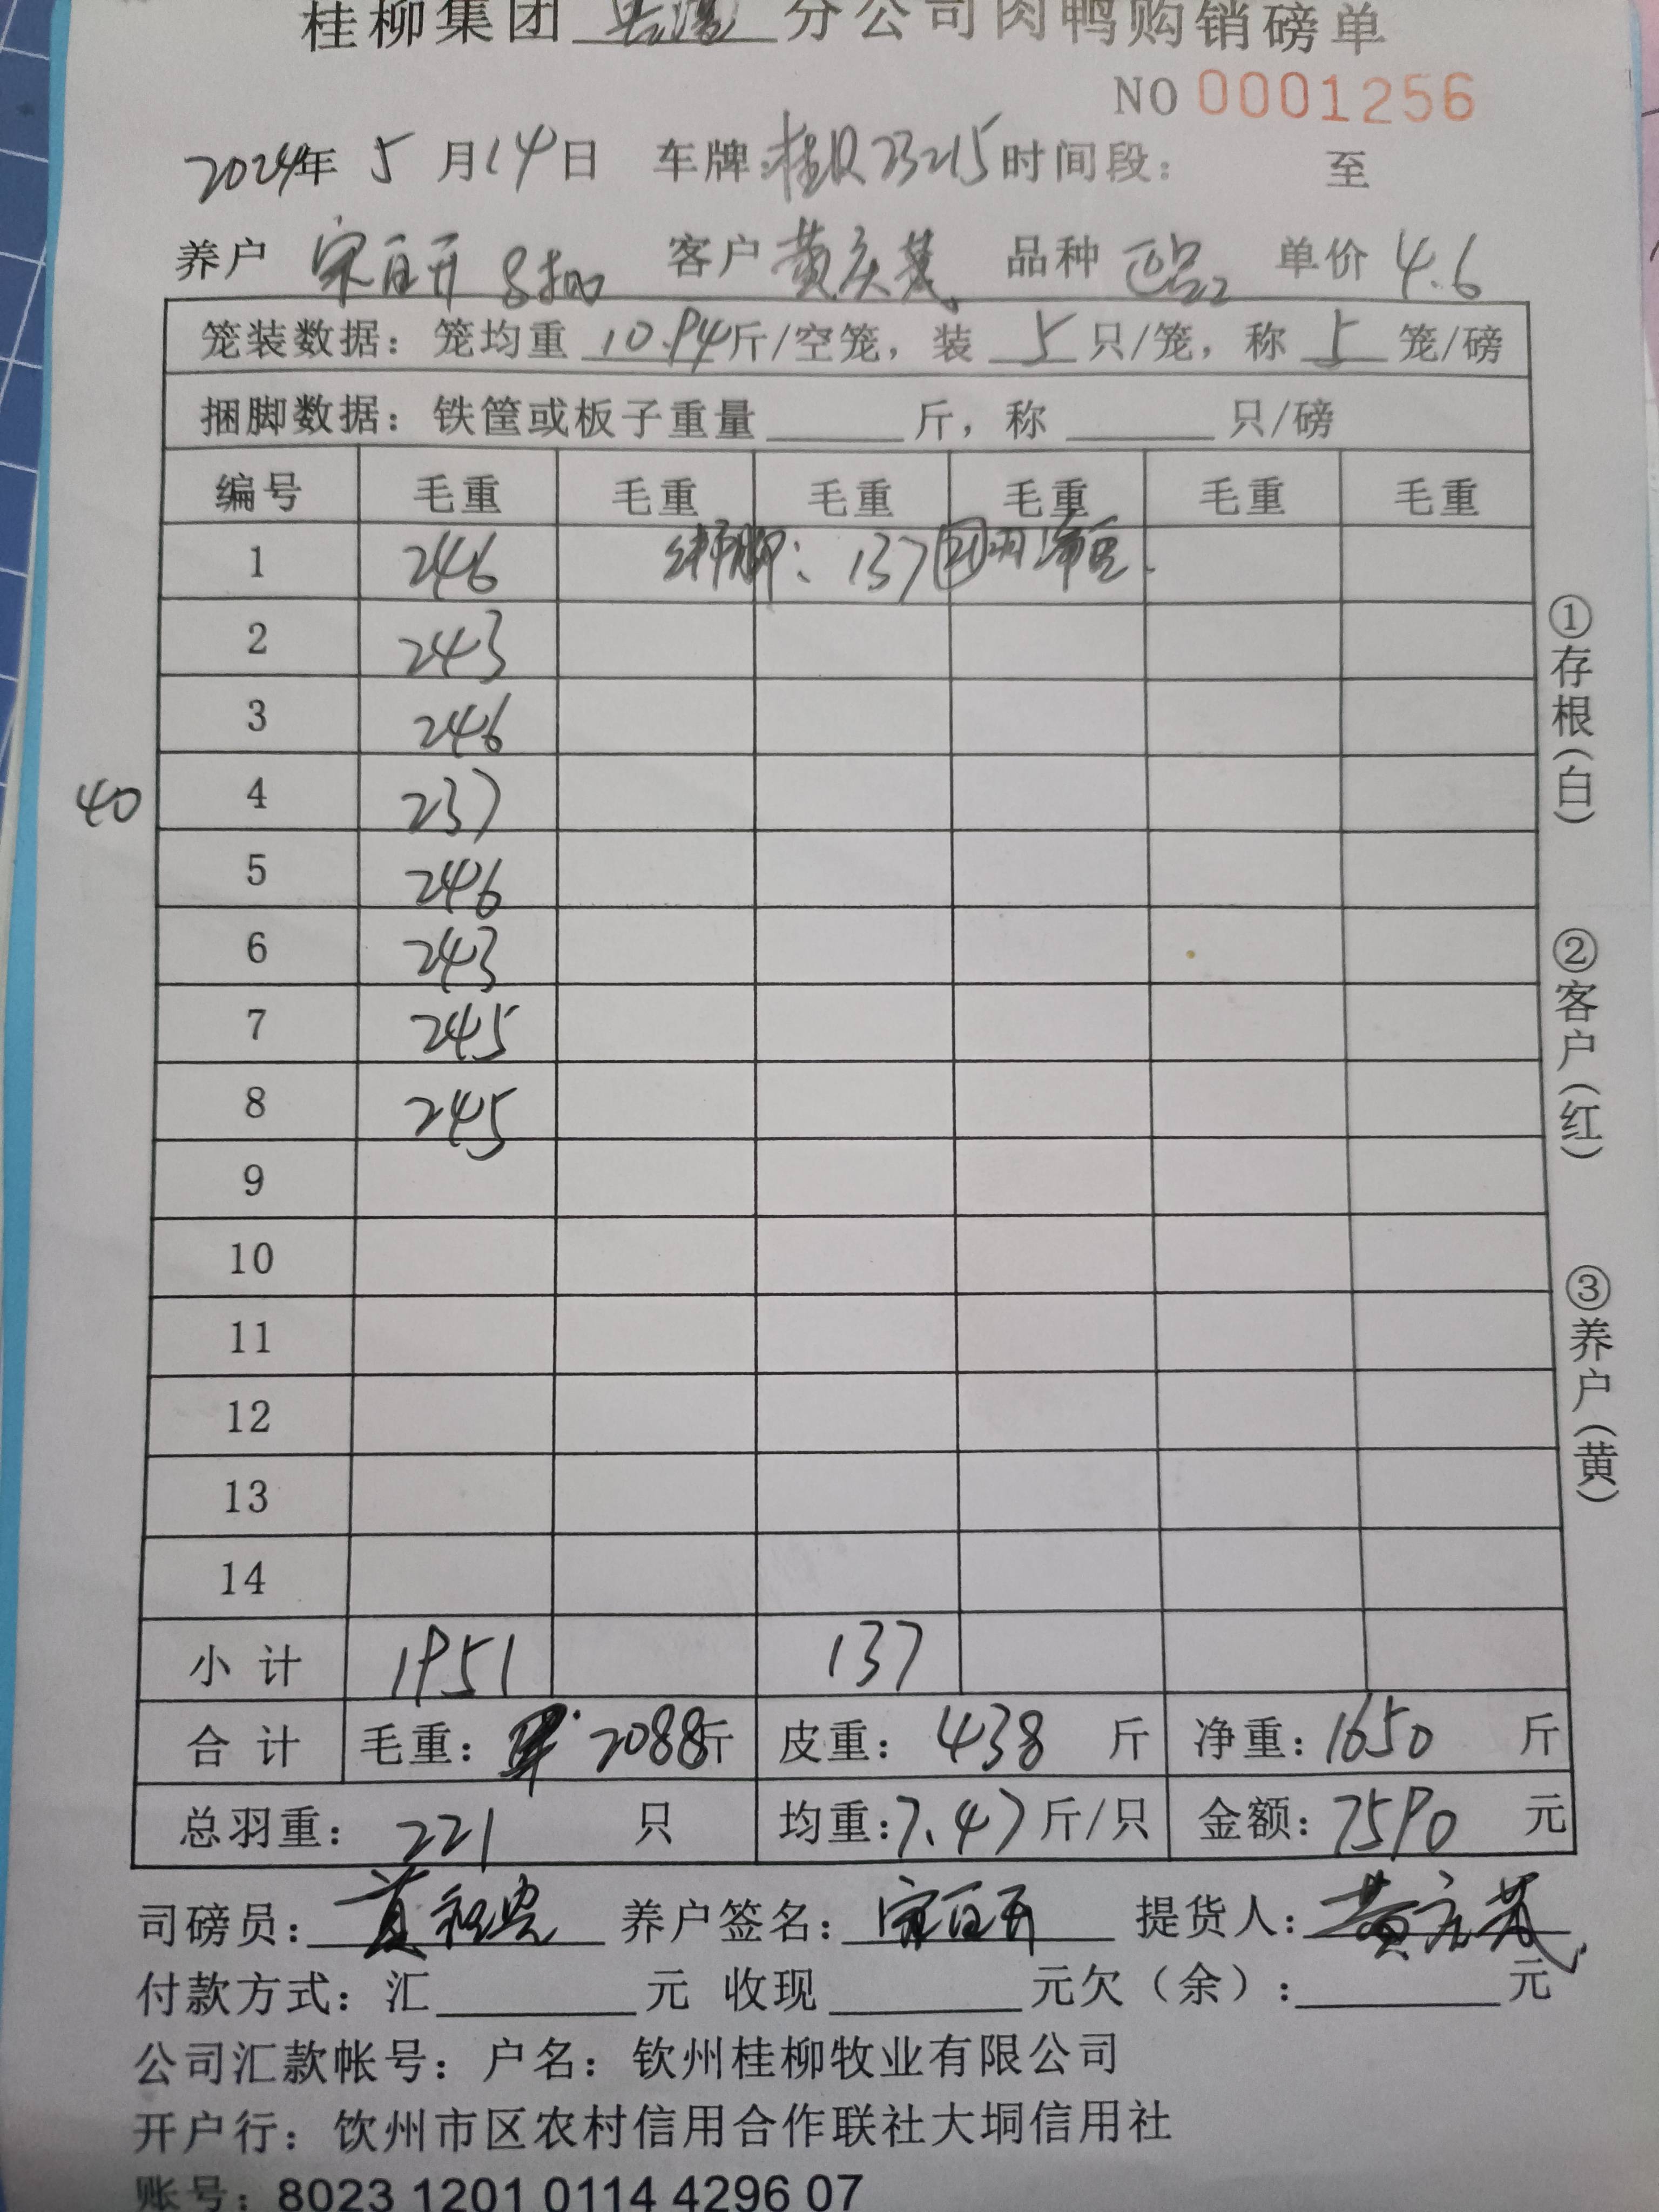 桂柳集团 分公司肉鸭购销磅单
NO 0001256
2024年 5 月 14 日 车牌: 桂R23215 时间段: 至
养户 宋百开 8扣 客户 黄庆茂 品种 正品2 单价 4.6
笼装数据: 笼均重 10.94 斤/空笼, 装 5 只/笼, 称 5 笼/磅
捆脚数据: 铁筐或板子重量 斤, 称 只/磅
编号 毛重 毛重 毛重 毛重 毛重 毛重
1 246 绑脚: 137 21羽 净重.
2 243
3 246
40
4 237
5 246
6 243
7 245
8 245
9
10
11
12
13
14
小计 1951 137
合计 毛重: 2088斤 皮重: 438 斤 净重: 1650 斤
总羽重: 221 只 均重: 7.47 斤/只 金额: 7590 元
司磅员: 养户签名: 宋百开 提货人: 黄庆茂
付款方式: 汇 元 收现 元欠(余): 元
公司汇款帐号: 户名: 钦州桂柳牧业有限公司
开户行: 钦州市区农村信用合作联社大垌信用社
账号: 8023 1201 0114 4296 07
①存根(白)
②客户(红)
③养户(黄)